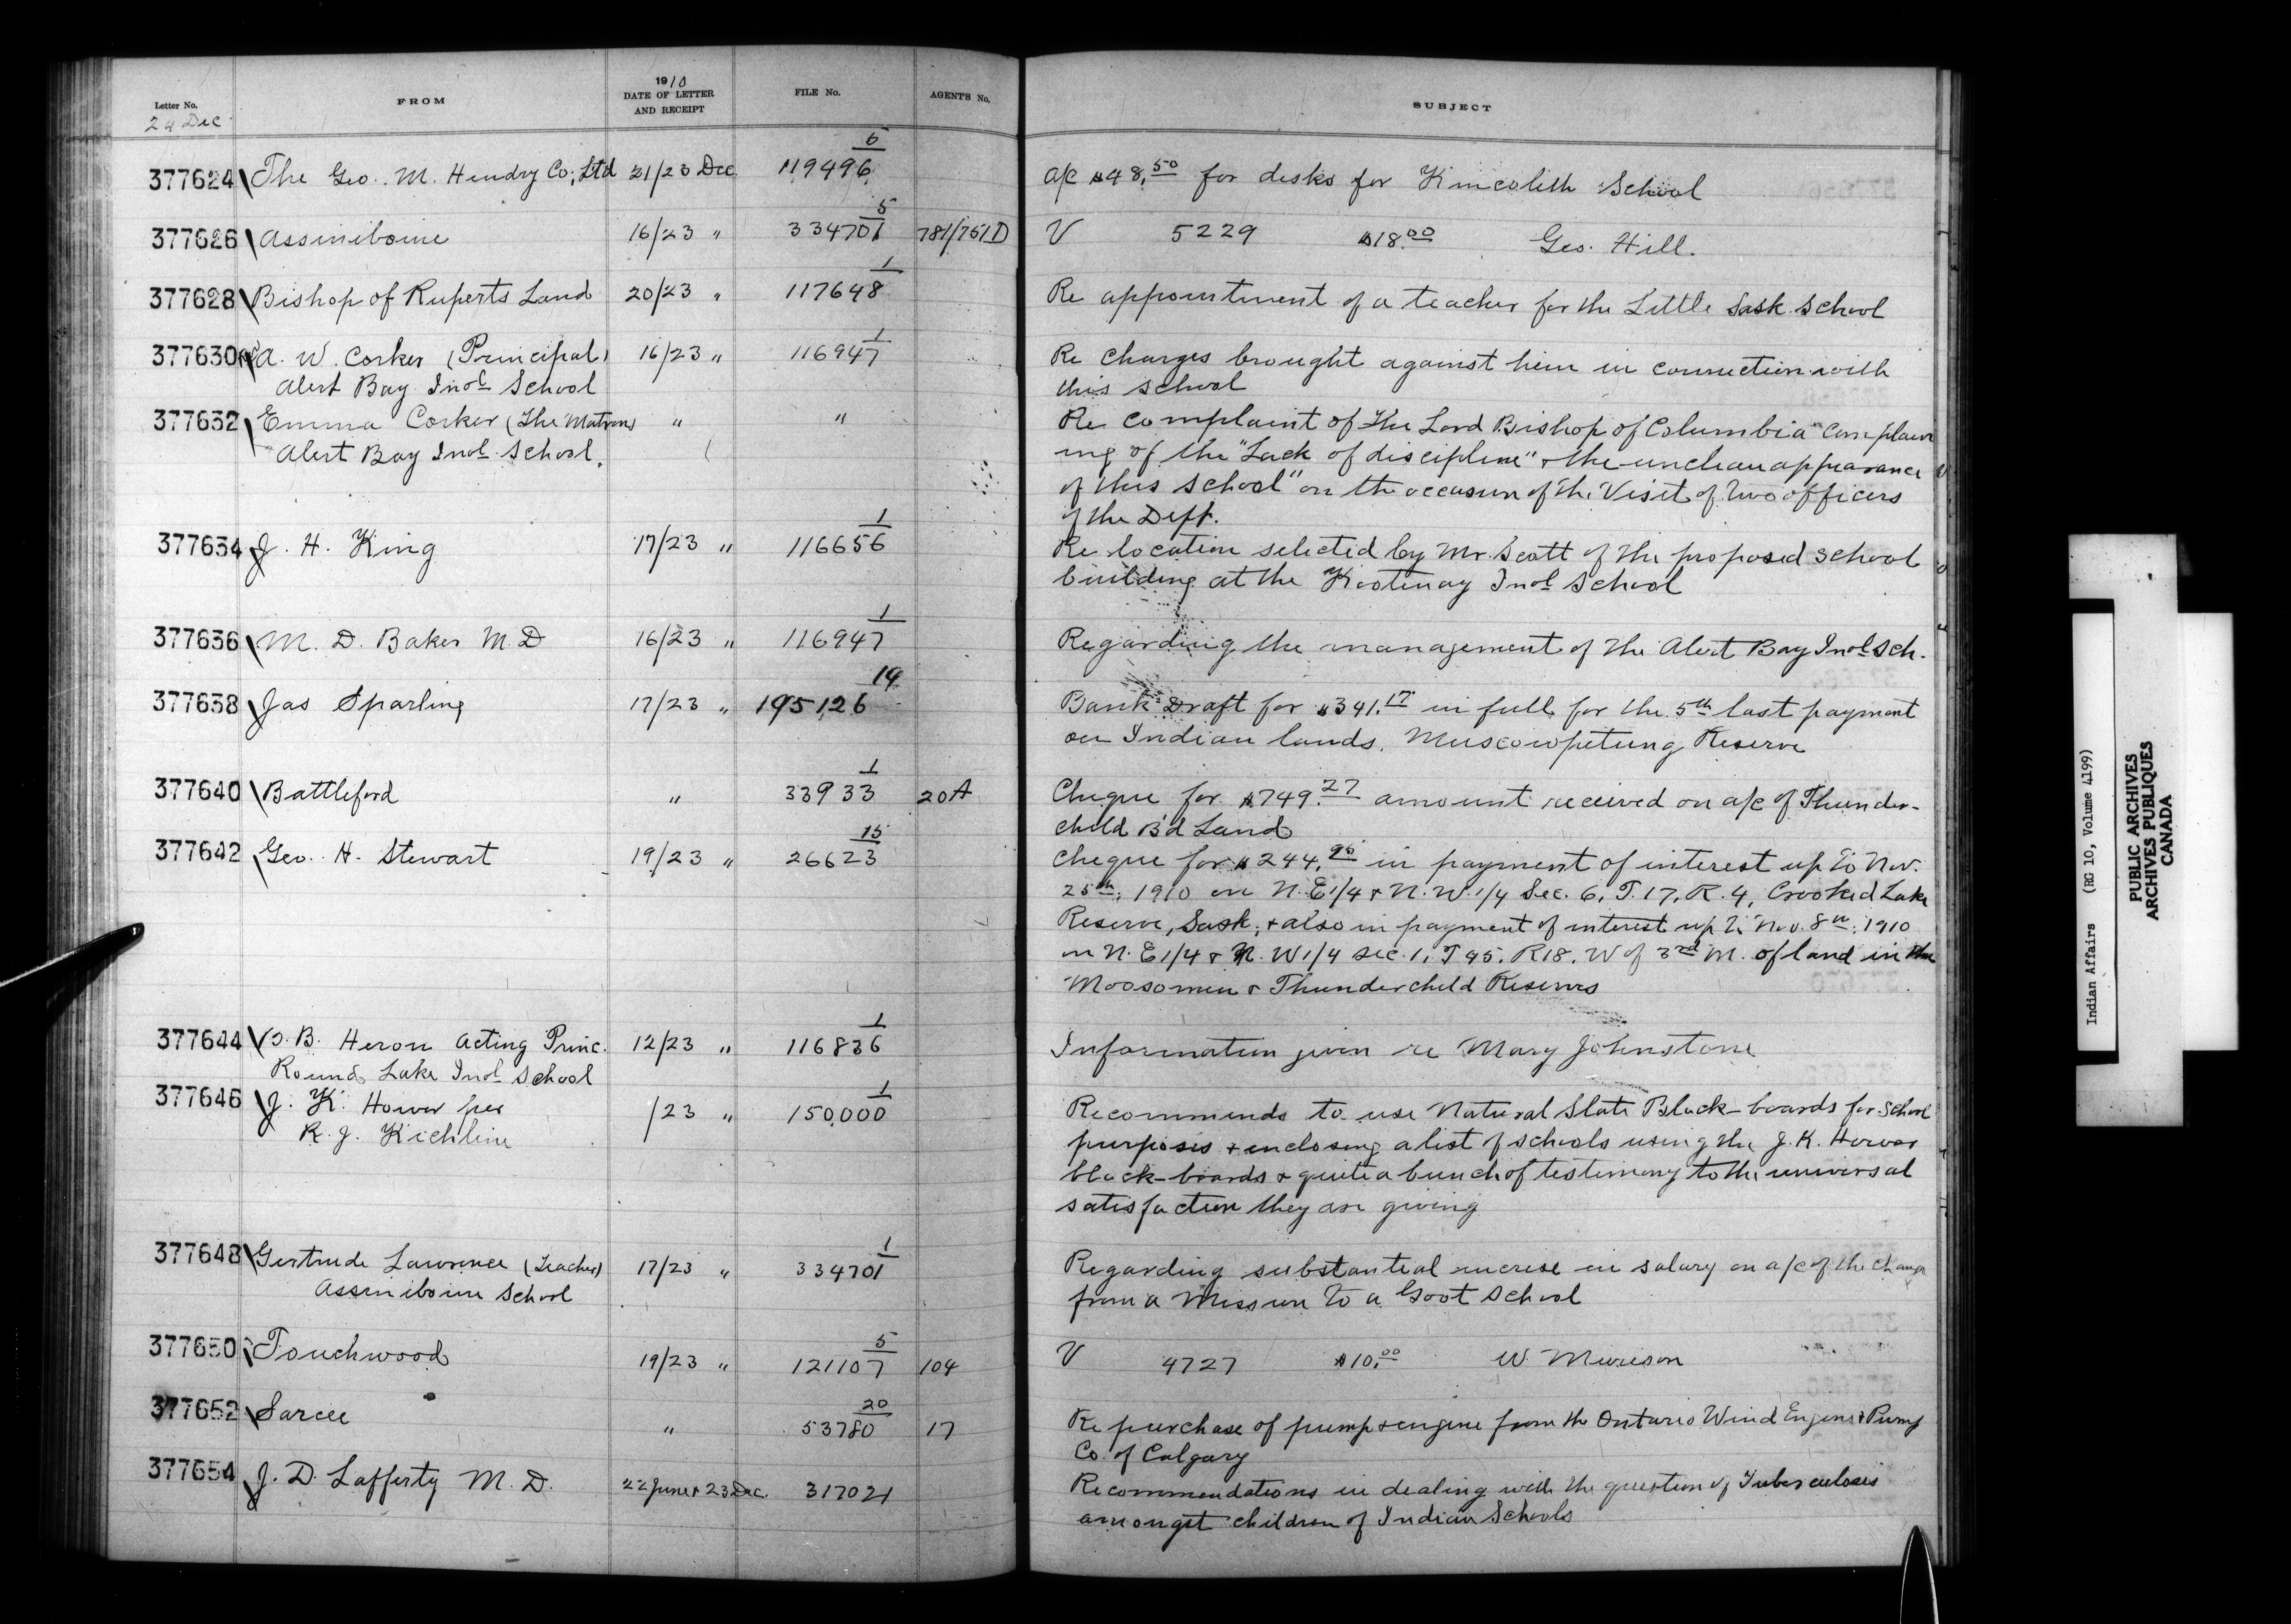 Letter No.
24 Dec
FROM
1910
DATE OF LETTER
AND RECEIPT
FILE No.
AGENT'S No.
SUBJECT
377624 The Geo. M. Hendry Co; Ltd 21/23 Dec. 119496 5 a/c $48.50 for desks for Kincolith School
377626 Assiniboine 16/23 " 334701 5 781/751D V 5229 $18.00 Geo. Hill.
377628 Bishop of Ruperts Land 20/23 " 117648 1 Re appointment of a teacher for the Little Sask. School
377630 A. W. Corker (Principal) 16/23 " 116947 1 Re charges brought against him in connection with
Alert Bay Indl School this school
377632 Emma Corker (The Matron) " " Re complaint of the Lord Bishop of Columbia "Complain
Alert Bay Indl School. ing of the "Lack of discipline" & the unclean appearance
of this school" on the occasion of the Visit of two officers
of the Dept.
377634 J. H. King 17/23 " 116656 1 Re location selected by Mr. Scott of the proposed school
building at the Kootenay Indl School
377636 M. D. Baker M.D 16/23 " 116947 1 Regarding the management of the Alert Bay Indl Sch.
377638 Jas Sparling 17/23 " 195126 14 Bank Draft for $341.17 in full for the 5th last payment
on Indian lands, Muscowpetung Reserve
377640 Battleford " 33933 1 20A Cheque for $749.27 amount received on a/c of Thunder-
child B'd Land
377642 Geo. H. Stewart 19/23 " 26623 15 Cheque for $244.95 in payment of interest up to Nov.
25th, 1910 on N.E 1/4 & N.W. 1/4 Sec. 6, T. 17, R. 4, Crooked Lake
Reserve, Sask; & also in payment of interest up to Nov. 8th, 1910
on N. E 1/4 & N. W 1/4 Sec. 1, T 45, R18, W of 3rd M. of land in the
Moosomin & Thunderchild Reserves
377644 B. Heron Acting Princ. 12/23 " 116836 1 Information given re Mary Johnstone
Round Lake Indl School
377646 J. K. Hower per /23 " 150,000 1 Recommends to use Natural Slate Black-boards for School
R. J. Kichline purposes & enclosing a list of schools using the J. K. Hower
black-boards & quite a bunch of testimony to the universal
satisfaction they are giving
377648 Gertrude Lawrence (Teacher) 17/23 " 334701 1 Regarding substantial increse in salary on a/c of the change
Assiniboine School from a Mission to a Govt School
377650 Touchwood 19/23 " 121107 5 104 V 4727 $10.00 W. Murison
377652 Sarcee " 53780 20 17 Re purchase of pump & engine from the Ontario Wind Engine & Pump
Co. of Calgary
377654 J. D. Lafferty M. D. 22 June & 23 Dec. 317021 Recommendations in dealing with the question of Tuberculosis
amongst children of Indian Schools
Indian Affairs (RG 10, Volume 4199)
PUBLIC ARCHIVES
ARCHIVES PUBLIQUES
CANADA